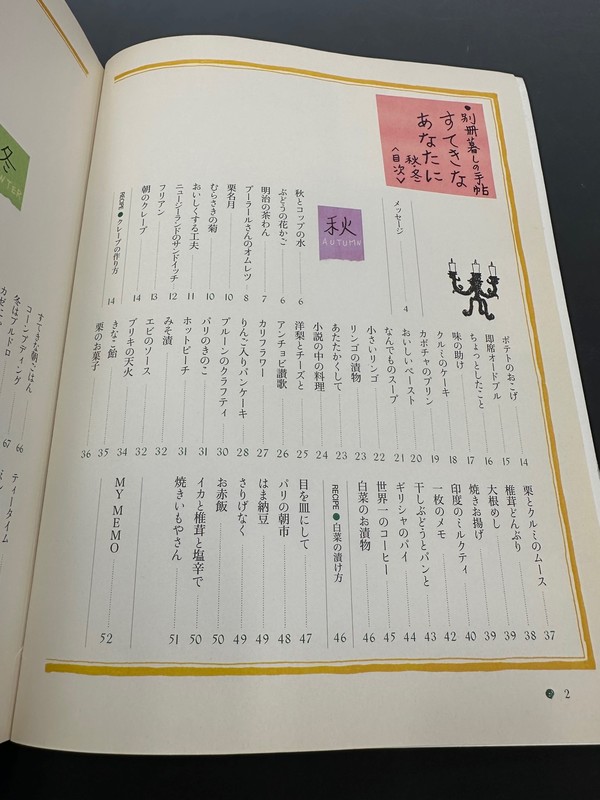 ●別冊暮しの手帖
すてきな
あなたに
秋・冬
〈目次〉
メッセージ 4
秋
AUTUMN
秋とコップの水 6
ぶどうの花かご 6
明治の茶わん 7
プーラールさんのオムレツ 8
栗名月 10
むらさきの菊 10
おいしくする工夫 11
ニュージーランドのサンドイッチ 12
フリアン 13
朝のクレープ 14
RECIPE●クレープの作り方 14
ポテトのおこげ 14
即席オードブル 15
ちょっとしたこと 16
味の助け 17
クルミのケーキ 18
カボチャのプリン 19
おいしいペースト 20
なんでものスープ 21
小さいリンゴ 22
リンゴの漬物 23
あたたかくして 23
小説の中の料理 24
洋梨とチーズと 25
アンチョビ讃歌 26
カリフラワー 27
りんご入りパンケーキ 28
プルーンのクラフティ 30
パリのきのこ 31
ホットピーチ 31
みそ漬 32
エビのソース 32
ブリキの天火 34
きなこ飴 35
栗のお菓子 36
栗とクルミのムース 37
椎茸どんぶり 38
大根めし 39
焼きお揚げ 39
印度のミルクティ 40
一枚のメモ 42
干しぶどうとパンと 43
ギリシャのパイ 44
世界一のコーヒー 45
白菜のお漬物 46
RECIPE●白菜の漬け方 46
目を皿にして 47
パリの朝市 48
はま納豆 49
さりげなく 49
お赤飯 50
イカと椎茸と塩辛で 50
焼きいもやさん 51
MY MEMO 52
2
冬
すてきな朝ごはん 66
コーンプディング 67
冬はアルドロ
ティータイム